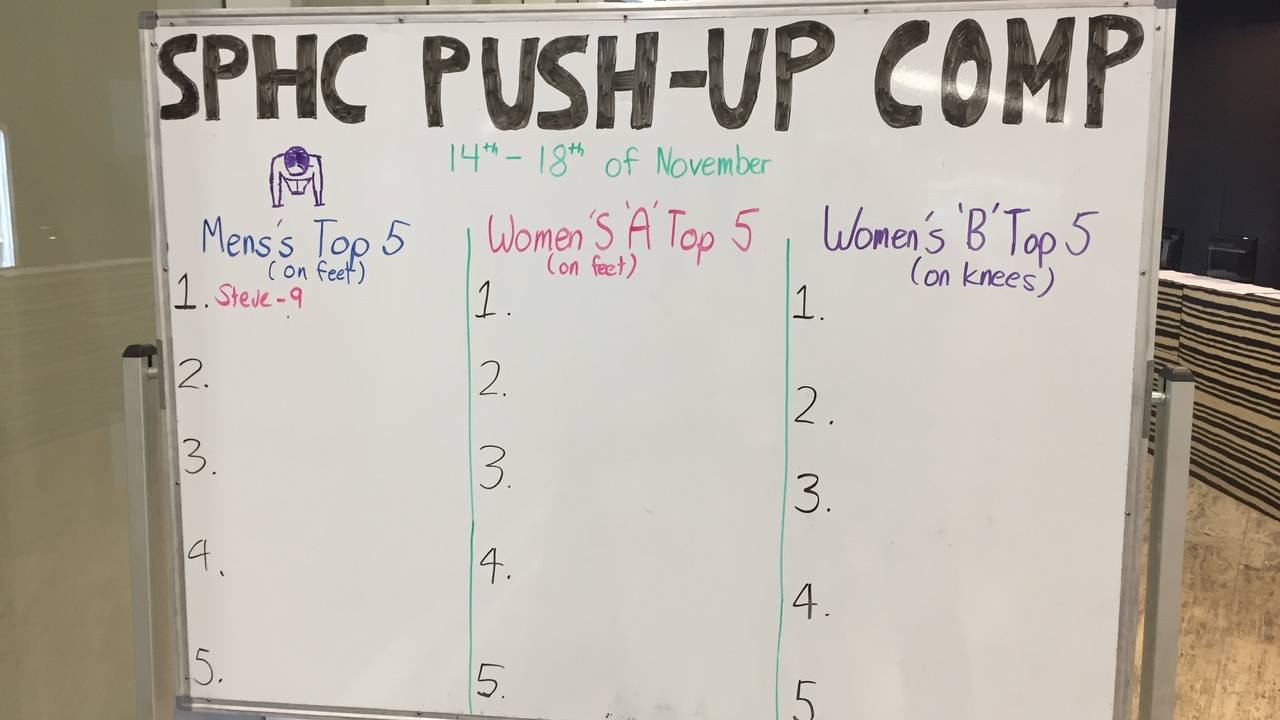 SPHC PUSH-UP COMP
14th - 18th of November
Mens's Top 5
(on feet)
1. Steve - 9
2.
3.
4.
5.
Women's 'A' Top 5
(on feet)
1.
2.
3.
4.
5.
Women's 'B' Top 5
(on knees)
1.
2.
3.
4.
5